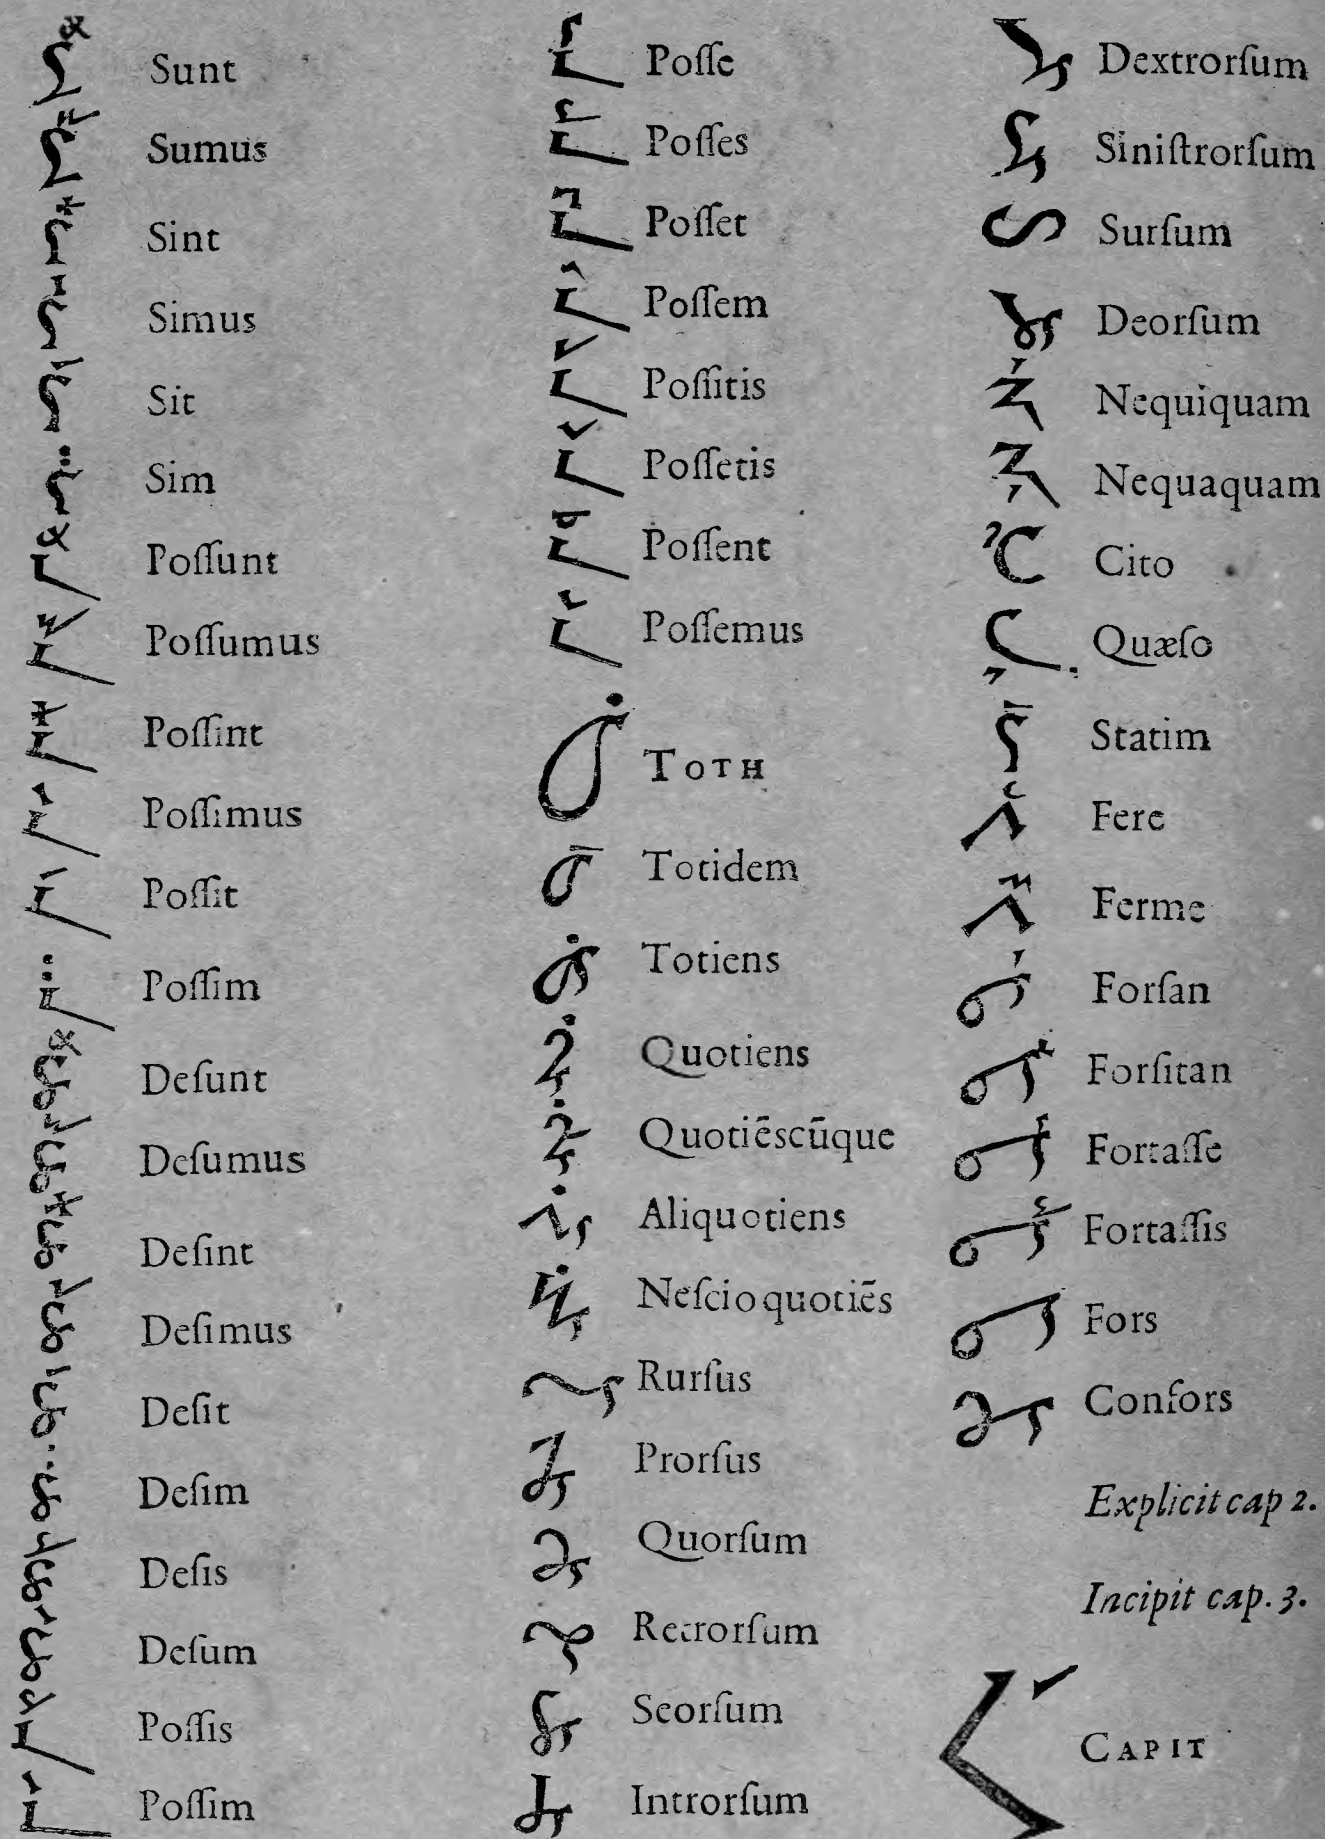 Sunt
Sumus
Sint
Simus
Sit
Sim
Poſſunt
Poſſumus
Poſſint
Poſſimus
Poſſit
Poſſim
Deſunt
Deſumus
Deſint
Deſimus
Deſit
Deſim
Deſis
Deſum
Poſſis
Poſſim
Poſſe
Poſſes
Poſſet
Poſſem
Poſſitis
Poſſetis
Poſſent
Poſſemus
TOTH
Totidem
Totiens
Quotiens
Quotiēscūque
Aliquotiens
Neſcioquotiēs
Rurſus
Prorſus
Quorſum
Retrorſum
Seorſum
Introrſum
Dextrorſum
Siniſtrorſum
Surſum
Deorſum
Nequiquam
Nequaquam
Cito
Quæſo
Statim
Fere
Ferme
Forſan
Forſitan
Fortaſſe
Fortaſſis
Fors
Conſors
Explicit cap 2.
Incipit cap. 3.
CAPIT